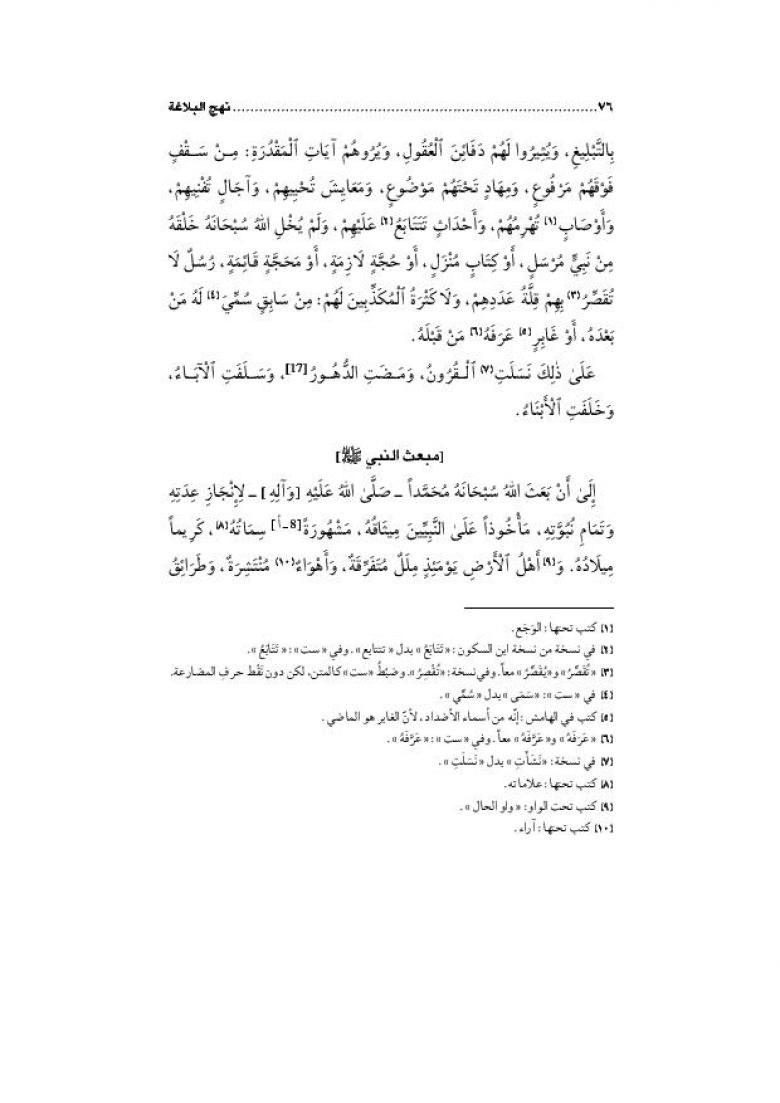 ٧٦ ................................................................................ نهج البلاغة
بِالتَّبْلِيغِ، وَيُثِيرُوا لَهُمْ دَفَائِنَ ٱلْعُقُولِ، وَيُرُوهُمْ آيَاتِ ٱلْمَقْدُرَةِ: مِـنْ سَـقْفٍ
فَوْقَهُمْ مَرْفُوعٍ، وَمِهَادٍ تَحْتَهُمْ مَوْضُوعٍ، وَمَعَايِشَ تُحْيِيهِمْ، وَآجَالٍ تُفْنِيهِمْ،
وَأَوْصَابٍ[١] تُهْرِمُهُمْ، وَأَحْدَاثٍ تَتَتَابَعُ[٢] عَلَيْهِمْ، وَلَمْ يُخْلِ اللهُ سُبْحَانَهُ خَلْقَهُ
مِنْ نَبِيٍّ مُرْسَلٍ، أَوْ كِتَابٍ مُنْزَلٍ، أَوْ حُجَّةٍ لَازِمَةٍ، أَوْ مَحَجَّةٍ قَائِمَةٍ، رُسُلٌ لَا
تُقَصِّرُ[٣] بِهِمْ قِلَّةُ عَدَدِهِمْ، وَلَا كَثْرَةُ ٱلْمُكَذِّبِينَ لَهُمْ: مِنْ سَابِقٍ سُمِّيَ[٤] لَهُ مَنْ
بَعْدَهُ، أَوْ غَابِرٍ[٥] عَرَفَهُ[٦] مَنْ قَبْلَهُ.
عَلَىٰ ذٰلِكَ نَسَلَتِ[٧] ٱلْـقُرُونُ، وَمَـضَتِ الدُّهُـورُ[17]، وَسَـلَفَتِ ٱلْآبَـاءُ،
وَخَلَفَتِ ٱلْأَبْنَاءُ.
[مبعث النبي ﷺ]
إِلَىٰ أَنْ بَعَثَ اللهُ سُبْحَانَهُ مُحَمَّداً ـ صَلَّىٰ اللهُ عَلَيْهِ [وَآلِهِ] ـ لِإِنْجَازِ عِدَتِهِ
وَتَمَامِ نُبُوَّتِهِ، مَأْخُوذاً عَلَىٰ النَّبِيِّينَ مِيثَاقُهُ، مَشْهُورَةً[8-أ] سِمَاتُهُ[٨]، كَرِيماً
مِيلَادُهُ. وَ[٩] أَهْلُ ٱلْأَرْضِ يَوْمَئِذٍ مِلَلٌ مُتَفَرِّقَةٌ، وَأَهْوَاءٌ[١٠] مُنْتَشِرَةٌ، وَطَرَائِقُ
[١] كتب تحتها: الوَجَع.
[٢] في نسخة من نسخة ابن السكون: «تَتَابَعُ» بدل «تتتابع». وفي «ست»: «تَتَابَعُ».
[٣] «تُقَصِّرُ» و«يُقَصِّرُ» معاً. وفي نسخة: «تُقْصِرُ». وضَبْطُ «ست» كالمتن، لكن دون نَقْط حرفِ المضارعة.
[٤] في «ست»: «سَمَى» بدل «سُمِّي».
[٥] كتب في الهامش: إنّه من أسماء الأضداد، لأنّ الغابر هو الماضي.
[٦] «عَرَفَهُ» و«عَرَّفَهُ» معاً. وفي «ست»: «عَرَّفَهُ».
[٧] في نسخة: «نَشَأَتِ» بدل «نَسَلَتِ».
[٨] كتب تحتها: علاماته.
[٩] كتب تحت الواو: «واو الحال».
[١٠] كتب تحتها: آراء.